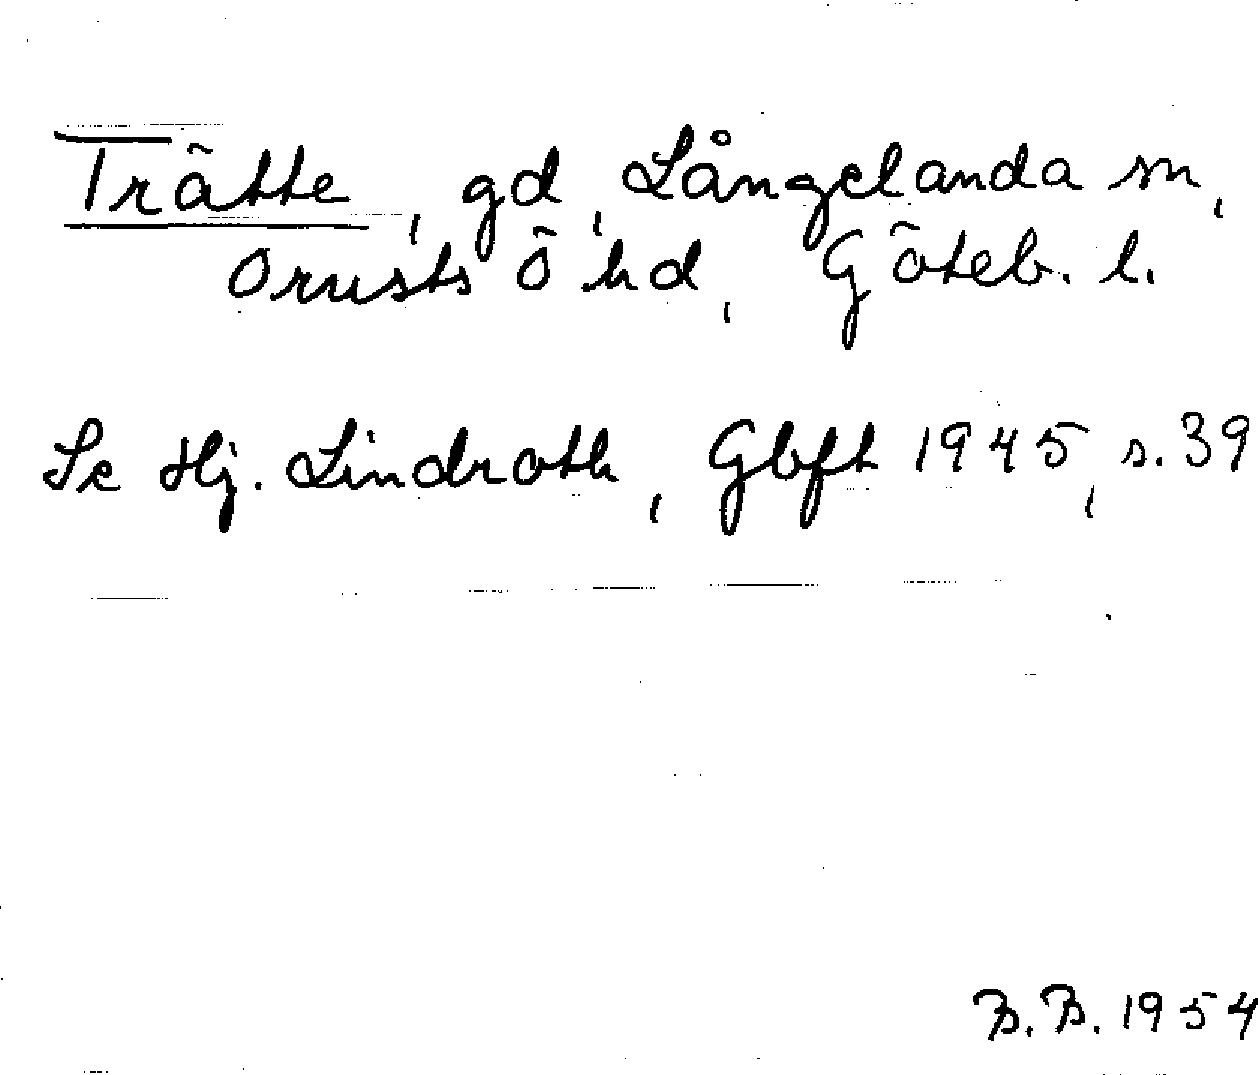 Trätte, gd, Långelanda sn,
Orusts ö hd, Göteb. l.
Se Hj. Lindroth, Gbft 1945, s. 39
B.B. 1954